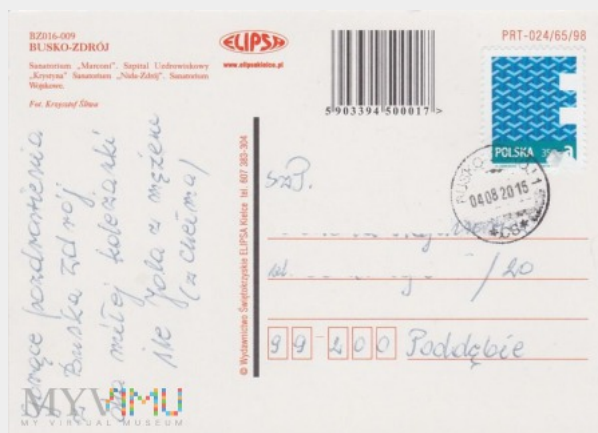 BZ016-009
BUSKO-ZDRÓJ
Sanatorium „Marconi”. Szpital Uzdrowiskowy
„Krystyna” Sanatorium „Nida-Zdrój”. Sanatorium
Wojskowe.
Fot. Krzysztof Śliwa
ELIPSA
www.elipsakielce.pl
5 903394 500017 >
PRT-024/65/98
POLSKA 350g A
04 08 2015
Gorące pozdrowienia
z Buska Zdrój
dla miłej koleżanki
śle Jola z mężem
(z Chełma)
© Wydawnictwo Świętokrzyskie ELIPSA Kielce tel. 607 383-304
Sz.P.
ul. /20
99-200 Poddębie
MYVIMU
MY VIRTUAL MUSEUM